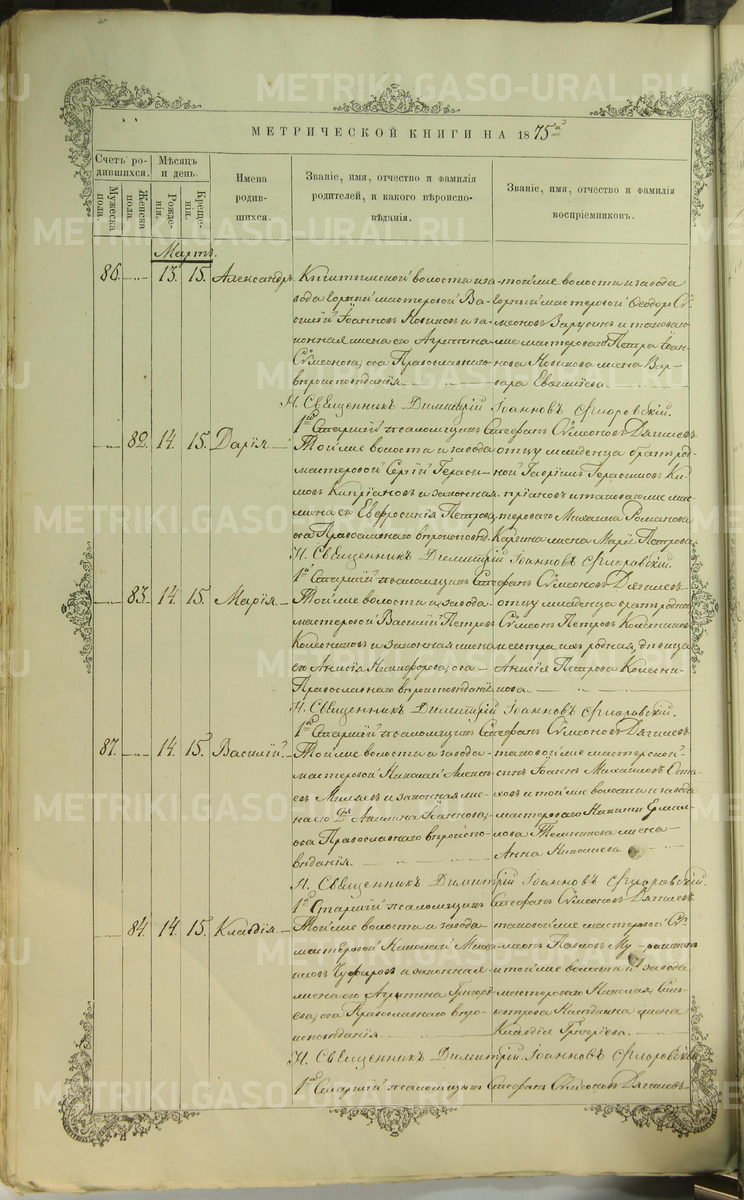 METRIKI.GASO-URAL.RU
МЕТРИЧЕСКОЙ КНИГИ НА 1875й
Счетъ родившихся.
Мужеска пола.
Женска пола.
Мѣсяцъ и день.
Рожденія.
Крещенія.
Имена родившихся.
Званіе, имя, отчество и фамилія родителей, и какого вѣроисповѣданія.
Званіе, имя, отчество и фамилія воспріемниковъ.
Мартъ.
86. 13. 15. Александръ
Кыштымской волости и завода мастеровой Василій Іоанновъ Новиковъ и законная жена его Агрипина Сѵмеонова, оба Православнаго вѣроисповѣданія
той же волости и завода мастеровой Ѳеодоръ Сѵмеоновъ и таковаго же мастероваго Петра Іоаннова Новикова жена Варвара
Н. Священникъ Димитрій Іоанновъ Флоровскій.
1й Старшій псаломщикъ Стефанъ Сѵмеоновъ Дягилевъ
82. 14. 15. Дарія.
Той же волости и завода мастеровой Сергій Герасимовъ Кипріановъ и законная жена его Евфросинія Петрова, оба Православнаго вѣроисповѣд.
отцу младенца братъ родной Герасимовъ Кипріановъ и таковаго же мастероваго Михаила Романова жена Марія Петрова
Н. Священникъ Димитрій Іоанновъ Флоровскій.
1й Старшій псаломщикъ Стефанъ Сѵмеоновъ Дягилевъ
83. 14. 15. Марія.
Той же волости и завода мастеровой Василій Петровъ Колесниковъ и законная жена его Анисія Никифорова, оба Православнаго вѣроисповѣданія
отцу младенца братъ родной Сѵмеонъ Петровъ Колесниковъ и сестра ихъ родная, дѣвица Анисія Петрова Колесникова
Н. Священникъ Димитрій Іоанновъ Флоровскій.
1й Старшій псаломщикъ Стефанъ Сѵмеоновъ Дягилевъ
87. 14. 15. Василій.
Той же волости и завода мастеровой Николай Алексѣевъ и законная жена его Іоаннова, оба Православнаго вѣроисповѣданія
таковой же мастерской сынъ Іоаннъ Михаиловъ и той же волости и завода мастероваго Никиты жена Анна Николаева
Н. Священникъ Димитрій Іоанновъ Флоровскій.
1й Старшій псаломщикъ Стефанъ Сѵмеоновъ Дягилевъ
84. 14. 15. Клавдія.
Той же волости и завода мастеровой Николай Михаиловъ и законная жена его Агрипина Григорьева, оба Православнаго вѣроисповѣданія
таковой же мастеровой Сѵмеонъ Павловъ и той же волости и завода мастероваго Николая жена Клавдія Григоріева
Н. Священникъ Димитрій Іоанновъ Флоровскій
1й Старшій псаломщикъ Стефанъ Сѵмеоновъ Дягилевъ